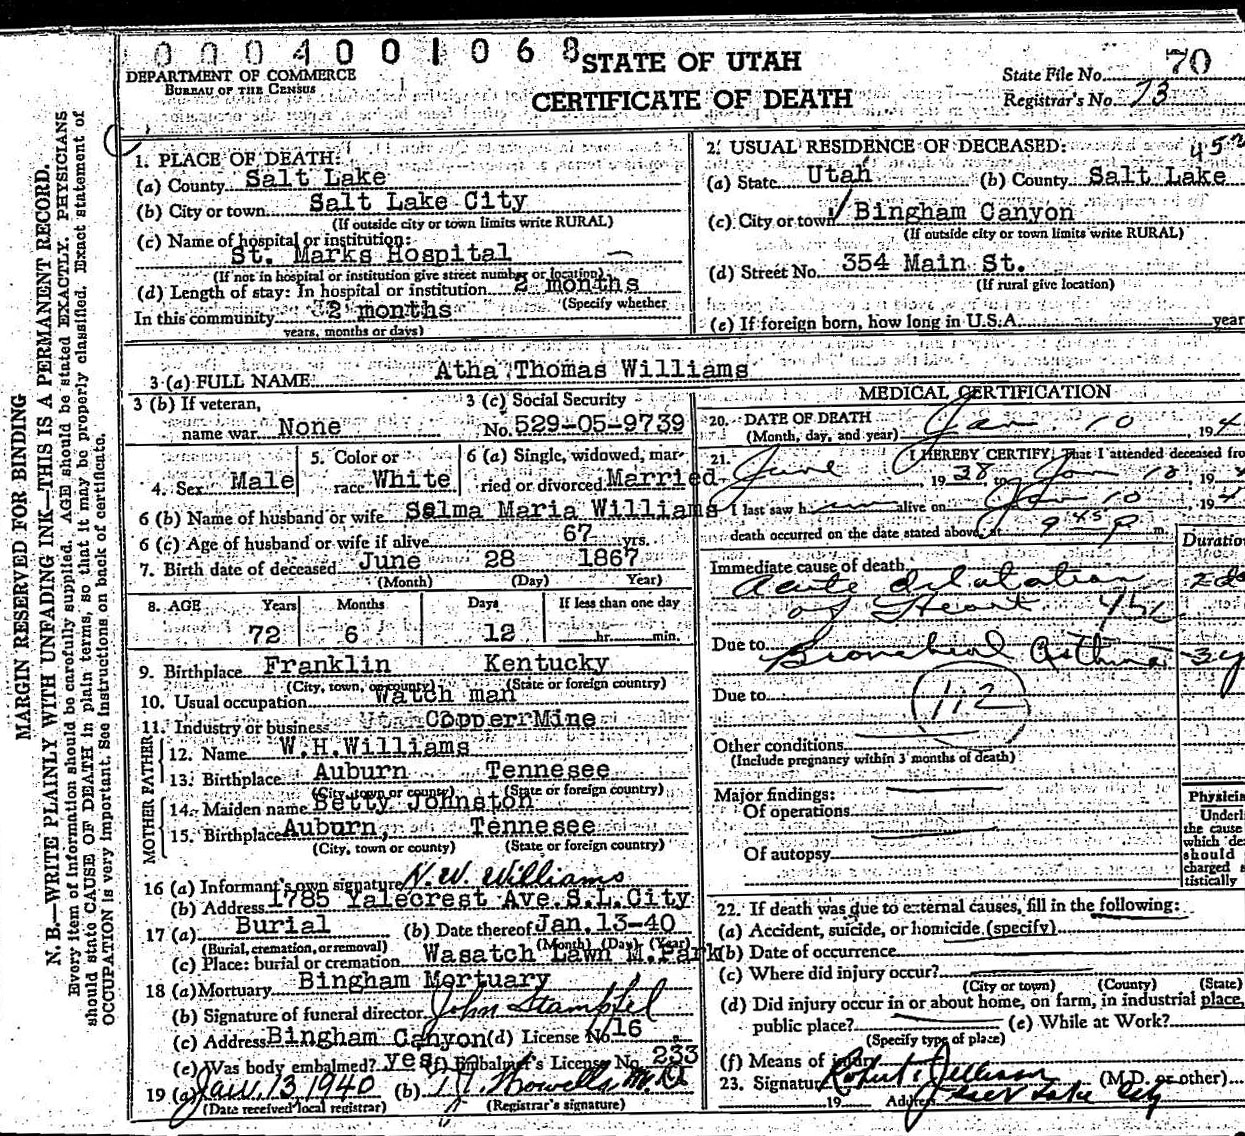 0004001068
STATE OF UTAH
CERTIFICATE OF DEATH
DEPARTMENT OF COMMERCE
BUREAU OF THE CENSUS
State File No. 70
Registrar's No. 73
MARGIN RESERVED FOR BINDING
N. B.—WRITE PLAINLY WITH UNFADING INK—THIS IS A PERMANENT RECORD.
Every item of information should be carefully supplied. AGE should be stated EXACTLY. PHYSICIANS
should state CAUSE OF DEATH in plain terms, so that it may be properly classified. Exact statement of
OCCUPATION is very important. See instructions on back of certificate.
1. PLACE OF DEATH:
(a) County Salt Lake
(b) City or town Salt Lake City
(If outside city or town limits write RURAL)
(c) Name of hospital or institution:
St. Marks Hospital
(If not in hospital or institution give street number or location)
(d) Length of stay: In hospital or institution 2 months
(Specify whether
In this community 2 months
years, months or days)
2. USUAL RESIDENCE OF DECEASED:
(a) State Utah (b) County Salt Lake
(c) City or town Bingham Canyon
(If outside city or town limits write RURAL)
(d) Street No. 354 Main St.
(If rural give location)
(e) If foreign born, how long in U.S.A. year
3 (a) FULL NAME Atha Thomas Williams
3 (b) If veteran,
name war None
3 (c) Social Security
No. 529-05-9739
4. Sex Male
5. Color or
race White
6 (a) Single, widowed, mar-
ried or divorced Married
6 (b) Name of husband or wife Selma Maria Williams
6 (c) Age of husband or wife if alive 67 yrs.
7. Birth date of deceased June 28 1867
(Month) (Day) Year)
8. AGE Years Months Days If less than one day
72 6 12 hr. min.
9. Birthplace Franklin Kentucky
(City, town, or county) (State or foreign country)
10. Usual occupation Watch man
11. Industry or business Copper Mine
FATHER
12. Name W.H.Williams
13. Birthplace Auburn Tennesee
(City, town or county) (State or foreign country)
MOTHER
14. Maiden name Betty Johnston
15. Birthplace Auburn, Tennesee
(City, town or county) (State or foreign country)
16 (a) Informant's own signature N. W. Williams
(b) Address 1785 Yalecrest Ave.S.L.City
17 (a) Burial (b) Date thereof Jan. 13-40
(Burial, cremation, or removal) (Month) (Day) (Year)
(c) Place: burial or cremation Wasatch Lawn M.Park
18 (a) Mortuary Bingham Mortuary
(b) Signature of funeral director John Stampfel
(c) Address Bingham Canyon (d) License No. 16
(e) Was body embalmed? yes (f) Embalmer's License No. 233
19 (a) Jan. 13, 1940 (b) Howells M.D.
(Date received local registrar) (Registrar's signature)
MEDICAL CERTIFICATION
20. DATE OF DEATH
(Month, day, and year) Jan. 10, 194
21. I HEREBY CERTIFY, That I attended deceased fro
June, 1938 to Jan 10, 194
I last saw h im alive on Jan 10, 194
death occurred on the date stated above, at 9 45 P m.
Duration
Immediate cause of death
Acute dilatation
of Heart
Due to Bronchial Asthma 3 y
Due to
112
Other conditions
(Include pregnancy within 3 months of death)
Major findings:
Of operations
Of autopsy
Physician
Underl
the cause
which de
should
charged s
tistically
22. If death was due to external causes, fill in the following:
(a) Accident, suicide, or homicide (specify)
(b) Date of occurrence
(c) Where did injury occur?
(City or town) (County) (State)
(d) Did injury occur in or about home, on farm, in industrial place,
public place? (e) While at Work?
(Specify type of place)
(f) Means of injury
23. Signature Robert Jellison (M.D. or other)
19 Address Salt Lake City